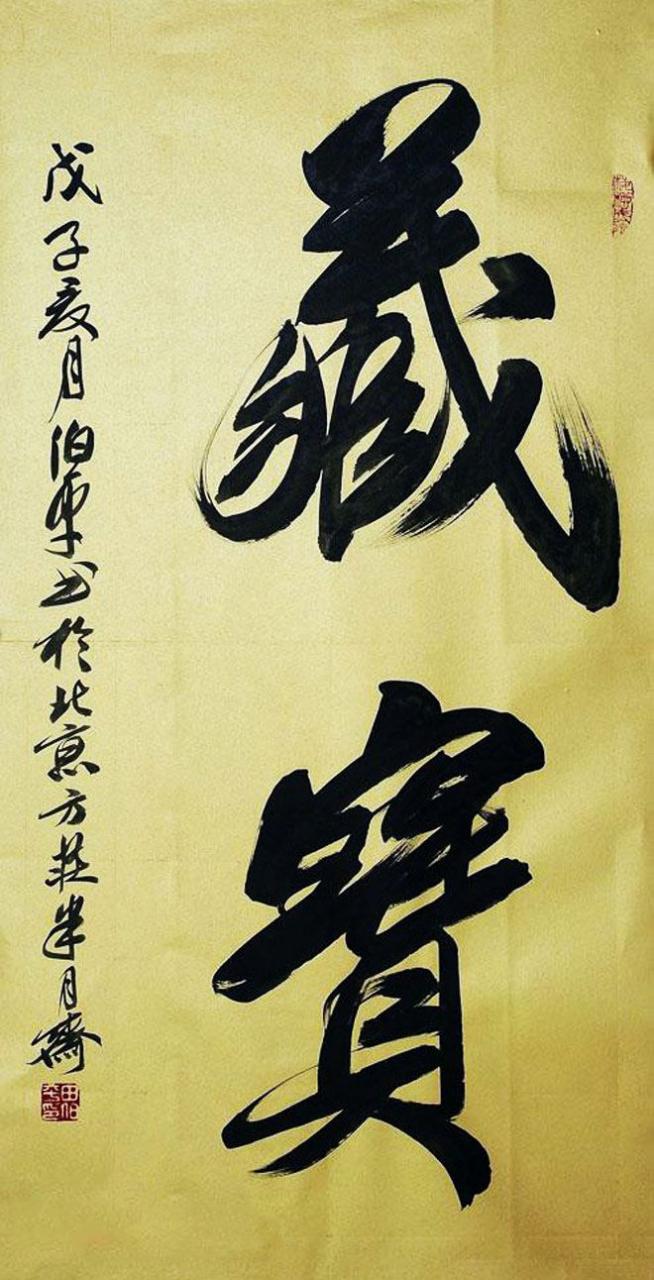 藏寶
戊子夏月伯平书於北京方莊半月齋
田伯平印